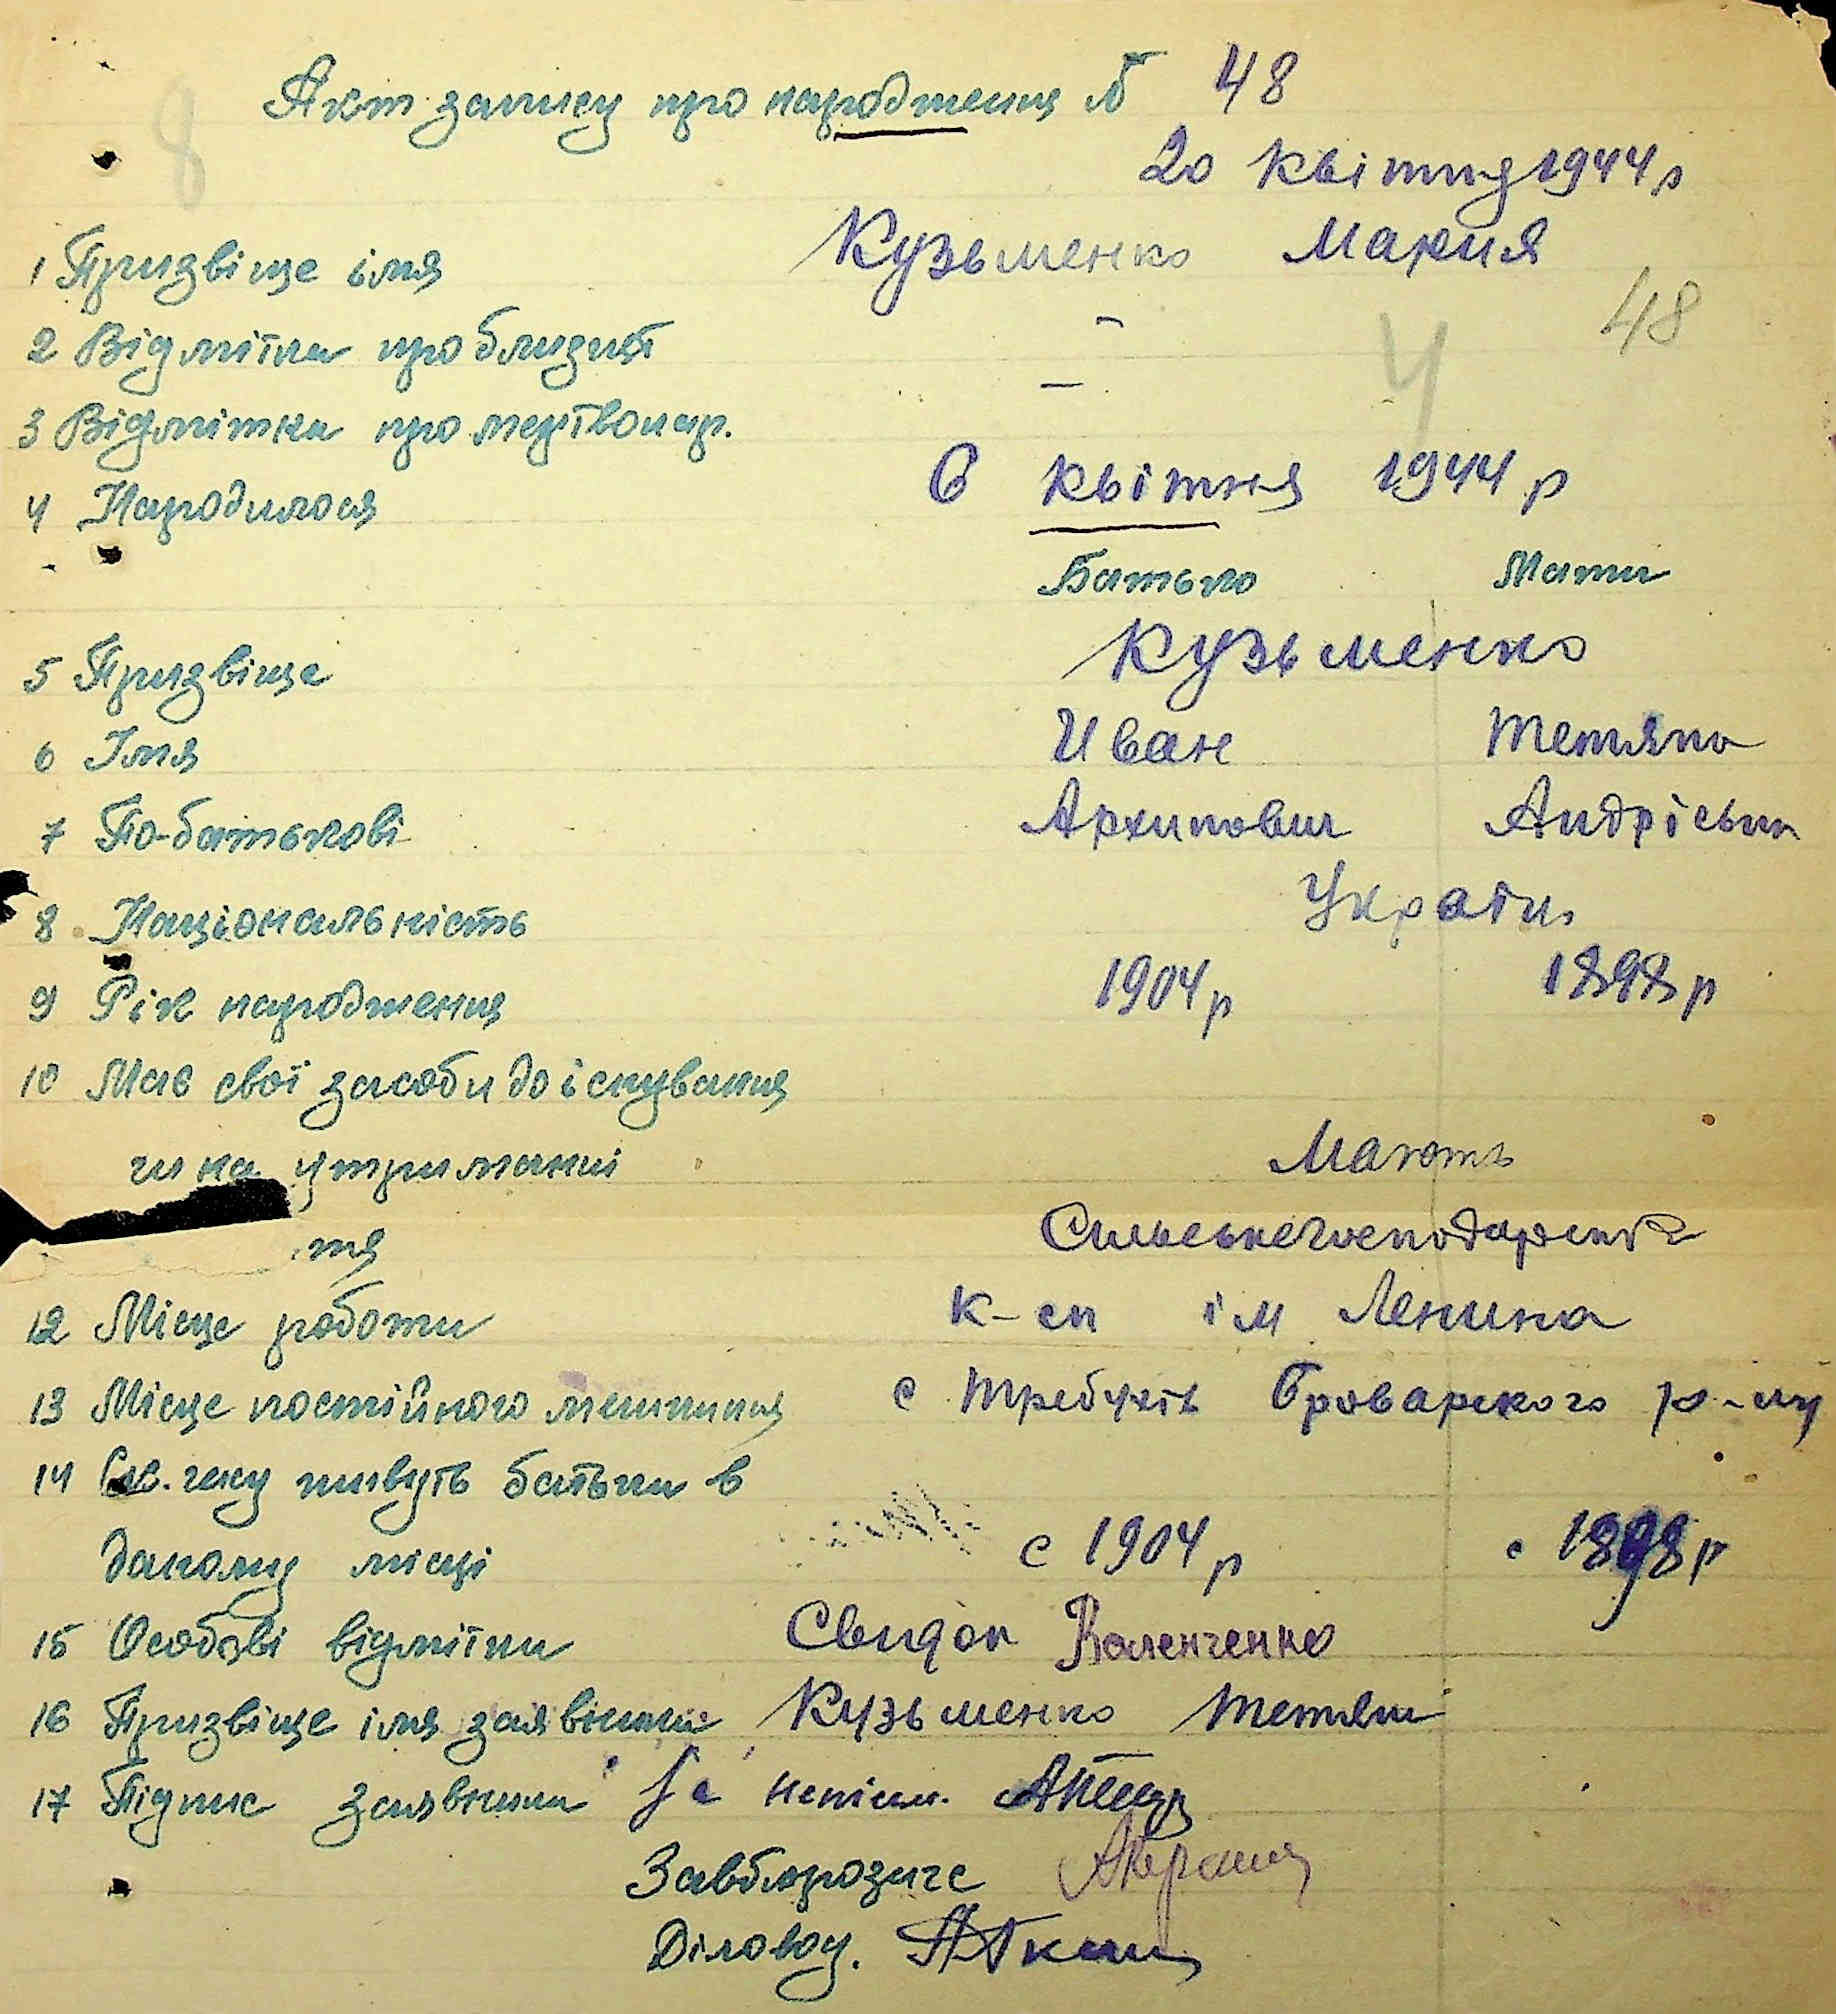 Акт запису про народження №  48
20 квітня 1944 р
1 Призвіще імя  Кузьменко Мария
48
2 Відмітка про близнят  –
4
3 Відмітка про мертвонар.  –
4 Народилося  6 квітня 1944 р
Батько  Мати
5 Призвіще  Кузьменко
6 Імя  Иван  Тетяна
7 По-батькові  Архипович  Андріевна
8 Національність  Україн.
9 Рік народження  1904 р  1898 р
10 Має свої засоби до існування
чи на утриманні  Мають
тя  Сильське господарств
12 Місце роботи  к-сп ім Ленина
13 Місце постійного мешкання  с Требухів Броварского р-ну
14 живуть батьки в
даному місці  с 1904 р  с 1898 р
15 Особові відмітки  Свидок
16 Призвіще імя заявника  Кузьменко Тетяни
17 Підпис заявника  непісьм.
Завбюрозагс
Діловод.